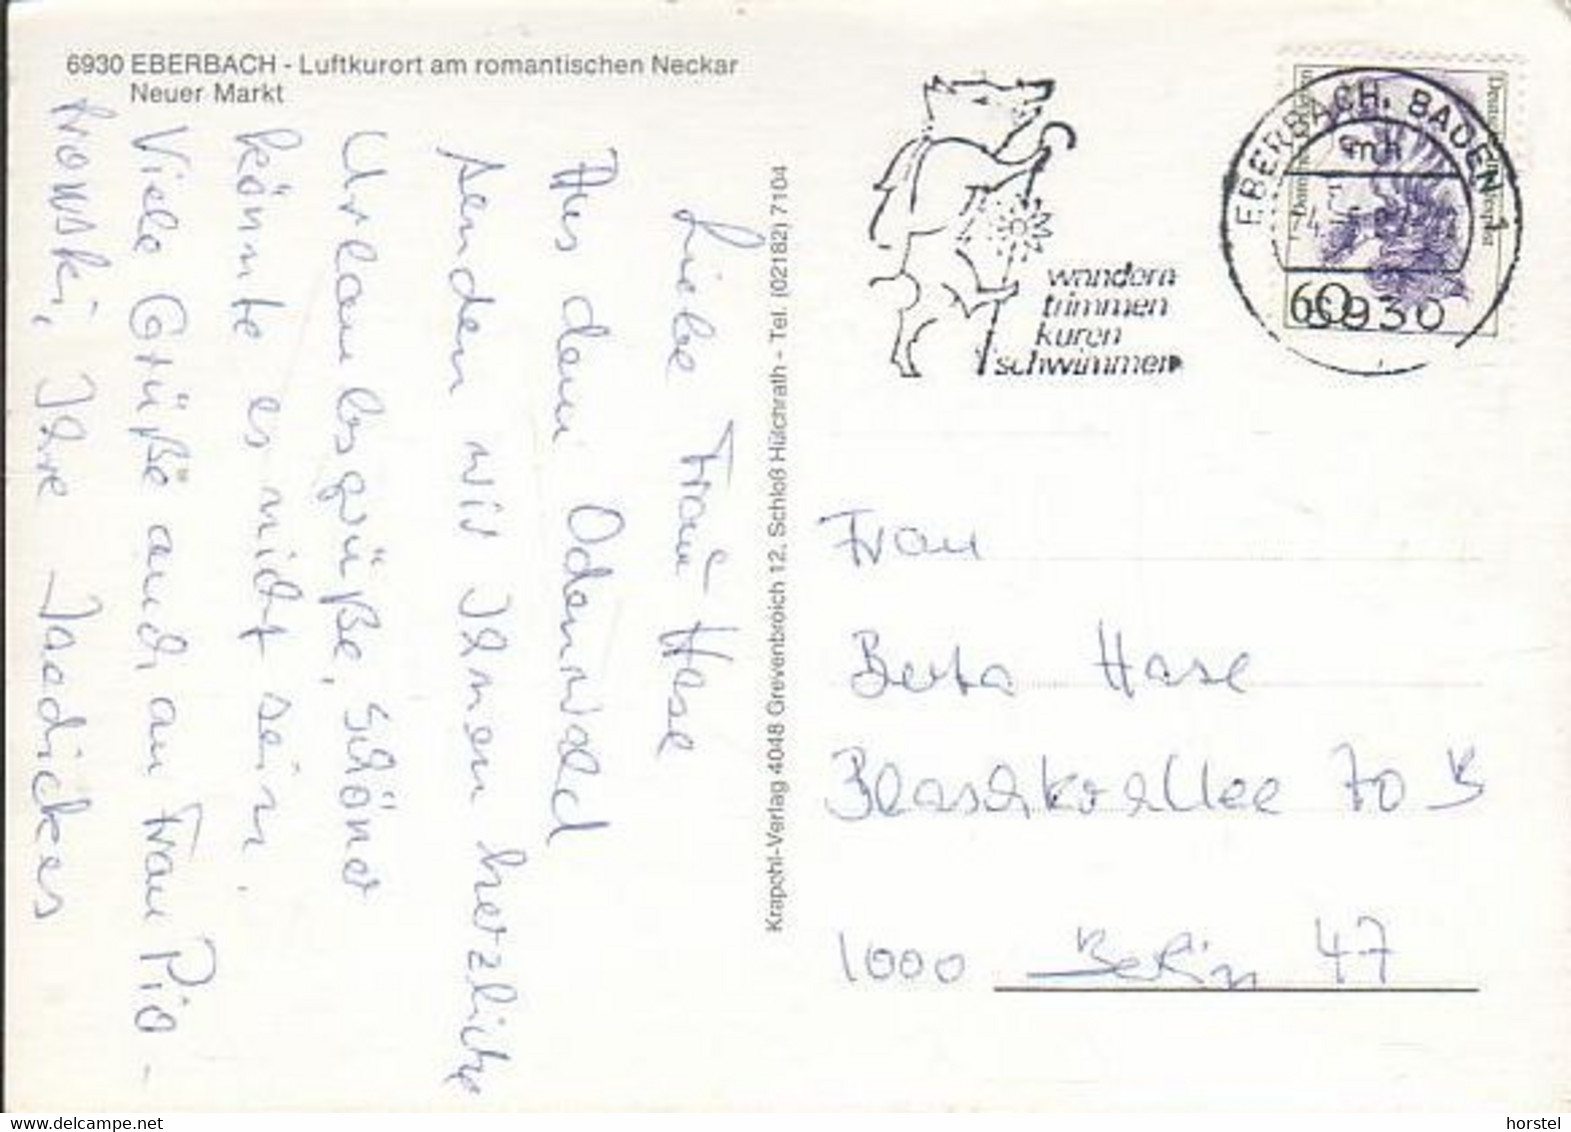 6930 EBERBACH - Luftkurort am romantischen Neckar
Neuer Markt
Liebe Frau Hase
Aus dem Odenwald
senden wir Ihnen herzliche
Urlaubsgrüße, schöner
könnte es nicht sein.
Viele Grüße auch an Frau Pio-
trowski, Ihre Jaedickes
Krapohl-Verlag 4048 Grevenbroich 12, Schloß Hülchrath - Tel. (02182) 7104
wandern
trimmen
kuren
schwimmen
EBERBACH, BADEN 1
mh
6930
60
Frau
Berta Hase
Blaschkoallee 70 B
1000 Berlin 47
www.delcampe.net
horstel